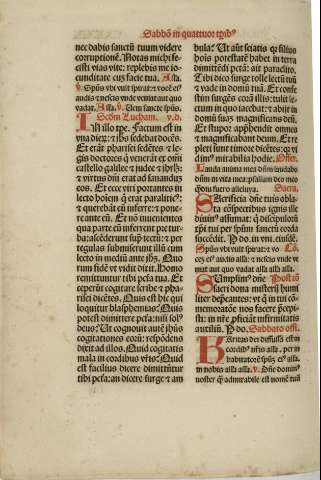 Sabbo in quattuor tpibꝰ
nec dabis sanctū tuum videre
corruptionē. Notas michi fe-
cisti vias vite: replebis me io-
cunditate cuz facie tua. Alla.
℣. Spūs vbi vult spirat: ⁊ vocē eiꝰ
audis ⁊ nescis vnde veniat aut quo
vadat. Alla. ℣. Veni sancte spūs.
Scdm Lucham. v.d.
In illo tpe. Factum est in
vna dierꝫ: ⁊ ihs sedebat docēs.
Et erāt pharisei sedētes ⁊ le-
gis doctores q̄ venerāt ex omi
castello galilee ⁊ iudee ⁊ ihrlm:
⁊ virtus dn̄i erat ad sanandum
eos. Et ecce viri portantes in
lecto hoiem q̄ erat paraliticꝰ:
⁊ querebāt eū inferre: ⁊ pone-
re ante eū. Et nō inuenientes
qua parte eū inferrent pre tur-
ba: ascēderunt sup tectū: ⁊ per
tegulas submiserunt illū cum
lecto in mediū ante ihm. Quo
rum fidē vt vidit dicit. Homo
remittuntur tibi peccata tua. Et
ceperūt cogitare scribe ⁊ pha-
risei dicētes. Quis est hic qui
loquitur blasphemias? Quis
potest dimittere pcta: nisi solꝰ
deus? Ut cognouit autē ihūs
cogitationes eorū: respondens
dixit ad illos. Quid cogitatis
mala in cordibus vr̄is? Quid
est facilius dicere dimittūtur
tibi pcta: an dicere surge ⁊ am
bula? Ut aūt sciatis qꝫ filius
hois potestatē habet in terra
dimittēdi pctā: ait paralitico.
Tibi dico surge tolle lectū tuū
⁊ vade in domū tuā. Et confe-
stim surgēs corā illis: tulit lec-
tum in quo iacebat: ⁊ abijt in
domū suaz magnificans deū.
Et stupor apprhendit omnes
⁊ magnificabant deum. Et re-
pleti sunt timore dicētes: qꝫ vi
dimꝰ mirabilia hodie. Offer.
Lauda anima mea dn̄m laudabo
dn̄m in vita mea: psallam deo meo
qdiu fuero alleluya. Sacra.
Sacrificia dn̄e tuis obla-
ta cōspectibus ignis ille
diuinꝰ assumat: q̄ discipuloꝝ
xpi tui per spūm sanctū corda
succēdit. P do. in vni. eiusdē.
Spūs vbi vult spirat: ⁊ vo Co.
cez eiꝰ audis alla: ⁊ nescis vnde ve
niat aut quo vadat alla alla alla.
Sumpsimꝰ dn̄e Post cō
sacri dona misterij humi
liter dep̄cantes: vt q̄ in tui cō-
memoratōe nos facere p̄cepi-
sti: in nr̄e p̄ficiāt infirmitatis
auxiliū. P do. Sabbato offi.
Karitas dei diffusa est in
cordibꝰ nr̄is alla. per in
habitatorē spūs eiꝰ alla.
in nobis alla alla. ℣. Dn̄e dominꝰ
noster q̄ admirabile est nomē tuū